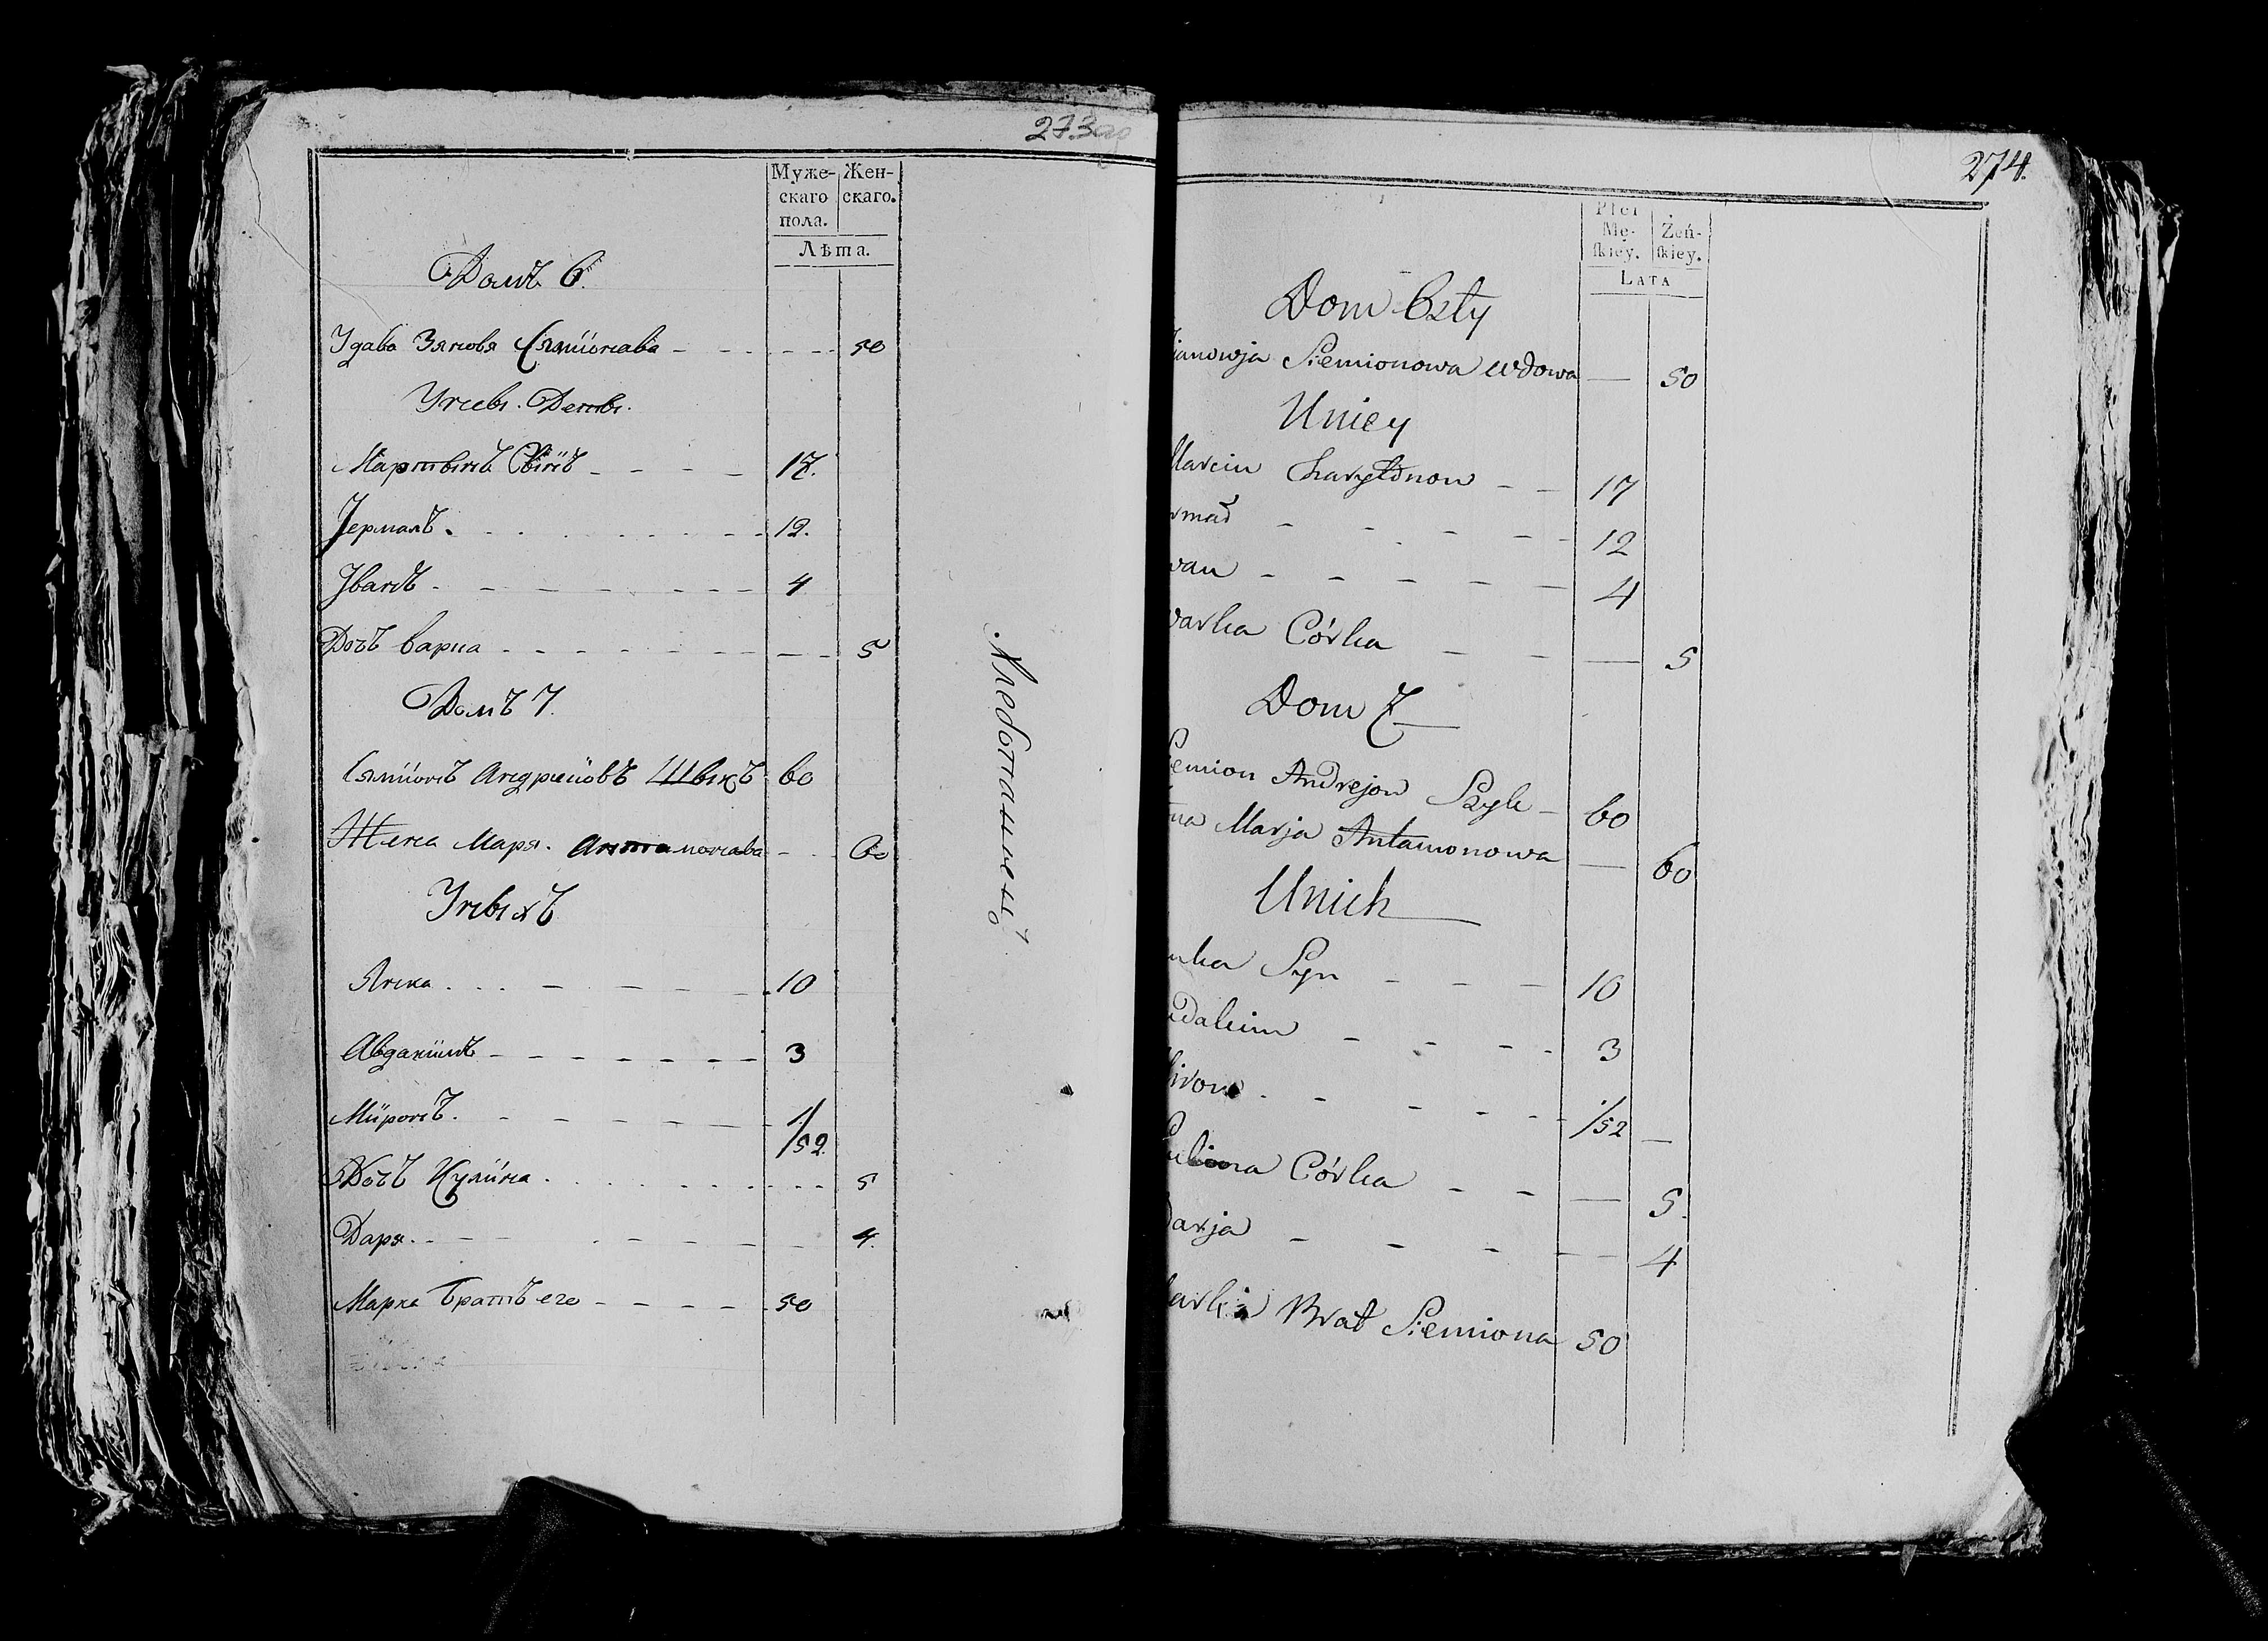 273об
Муже-
скаго
пола.
Жен-
скаго.
Лѣта.
Домъ 6.
Удава Зяновя Сямiонава - - - - 50
Унеы. Деты.
Мартынъ - - - - 17.
Iермакъ - - - - 12.
Iванъ - - - - 4
Дочъ варка - - - - 5
Домъ 7.
Сямiонъ Андреиовъ Шыкъ 60
Жена Маря. Антамонава - - 60
Уныхъ
Янка - - - - 10
Авдакiимъ - - - - 3
Мiиронъ. - - - - 1/52.
Дочъ Кулiна - - - - 5
Даря. - - - - 4.
Марка братъ его - - - - 50
274.
Płci
Mę-
ſkiey.
Żeń-
ſkiey.
LATA
Dom 6sty
ianowja Siemionowa wdowa — 50
Uniey
Marcin - - 17
rmaŏ - - - - 12
wan - - - - 4
warka Córka - - — 5
Dom 7
iemion Andrejow Szyk - 60
na Marja Antamonowa — 60
Unich
nka Syn - - - 10
wdakim - - - - 3
Miron - - - - 1/52 —
ulina Córka - - — 5.
Darja - - - — 4
Mark Brat Siemiona 50